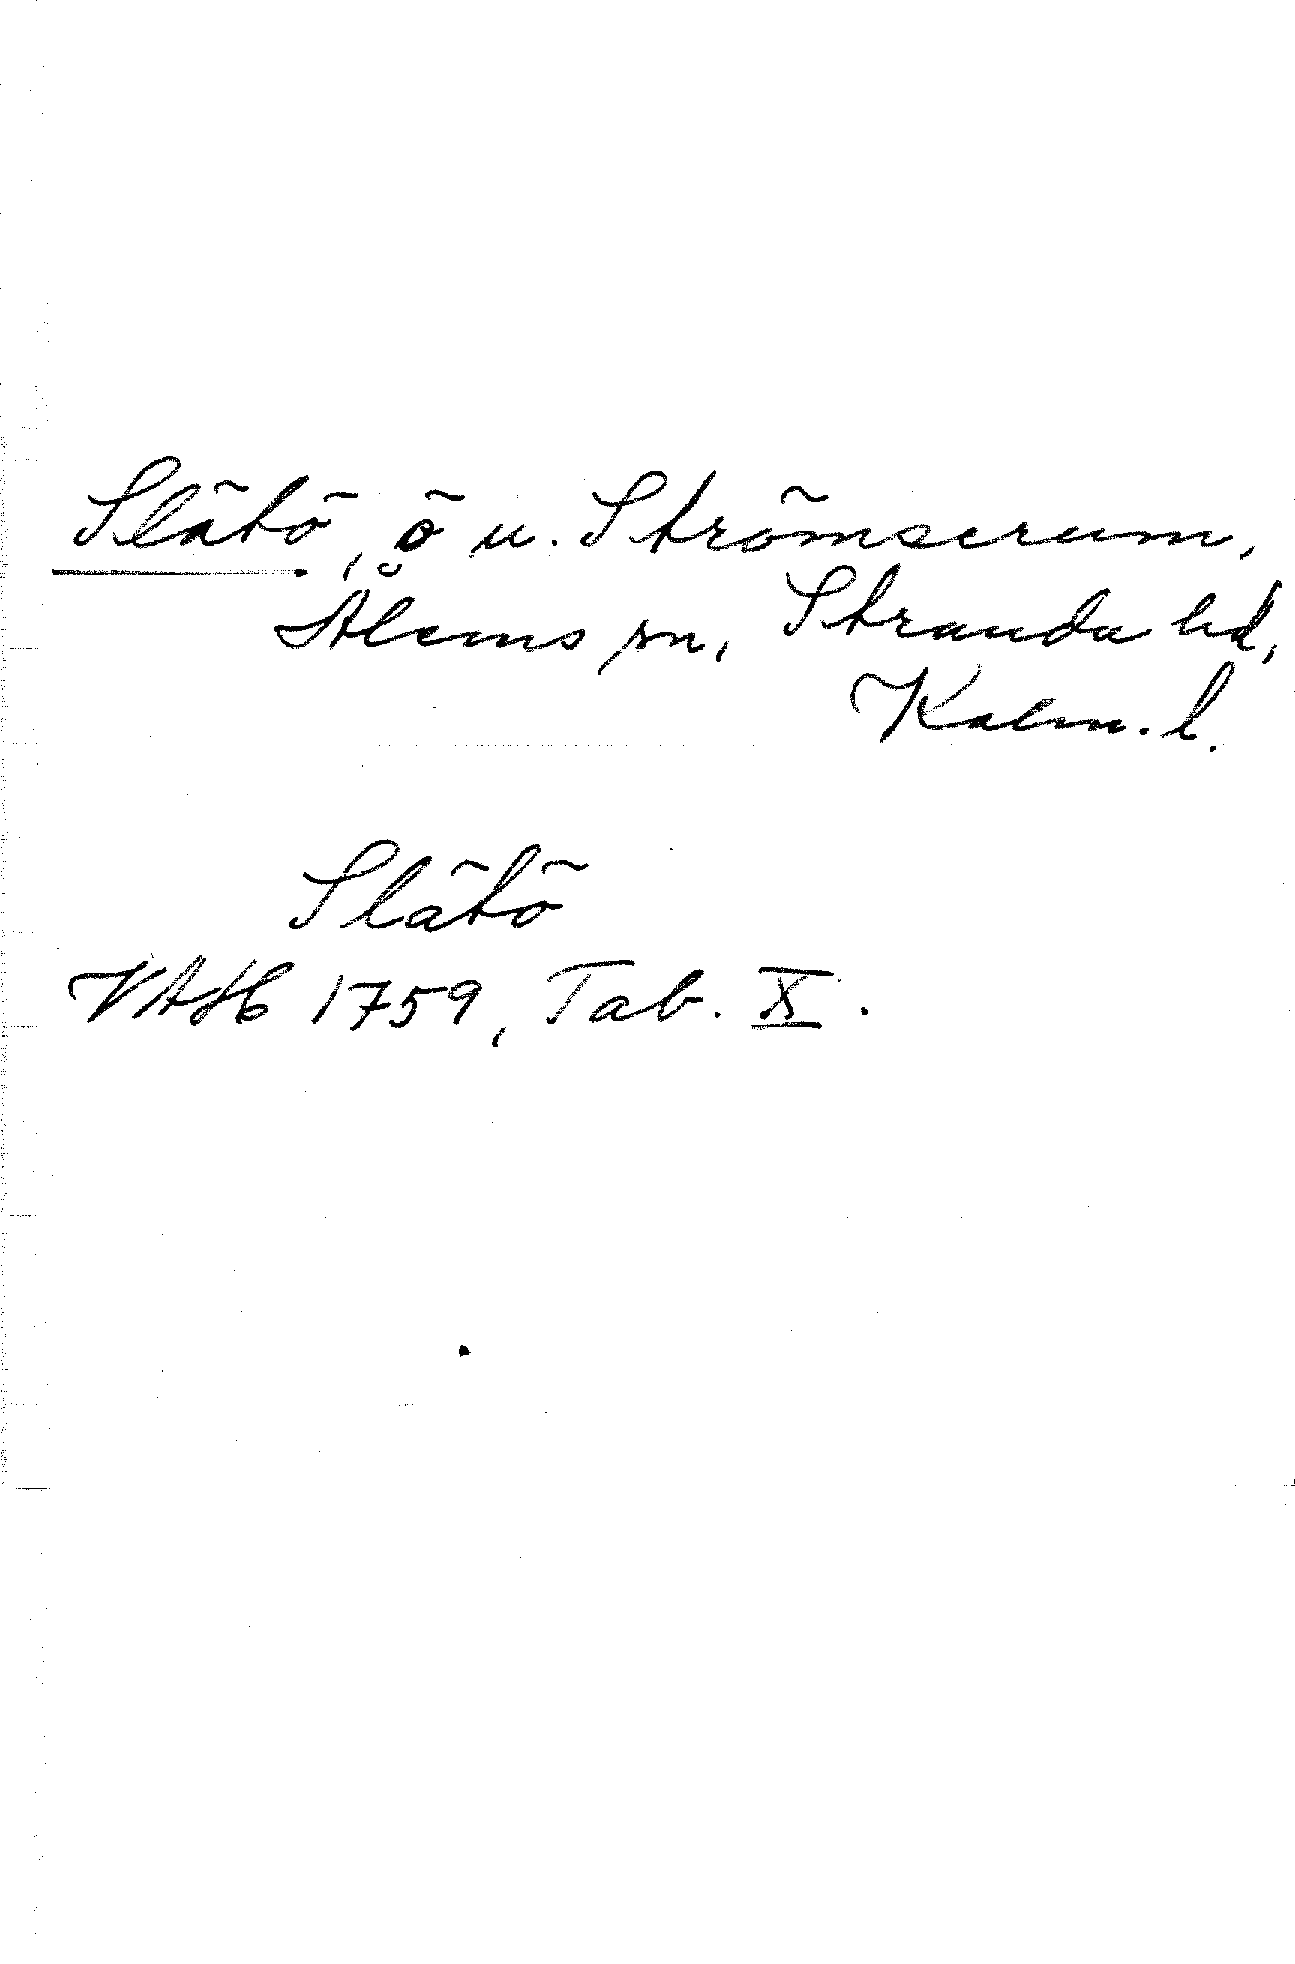 Slätö, ö u. Strömserum,
Ålems sn, Stranda hd,
Kalm. l.
Slätö
VAH 1759, Tab. X.